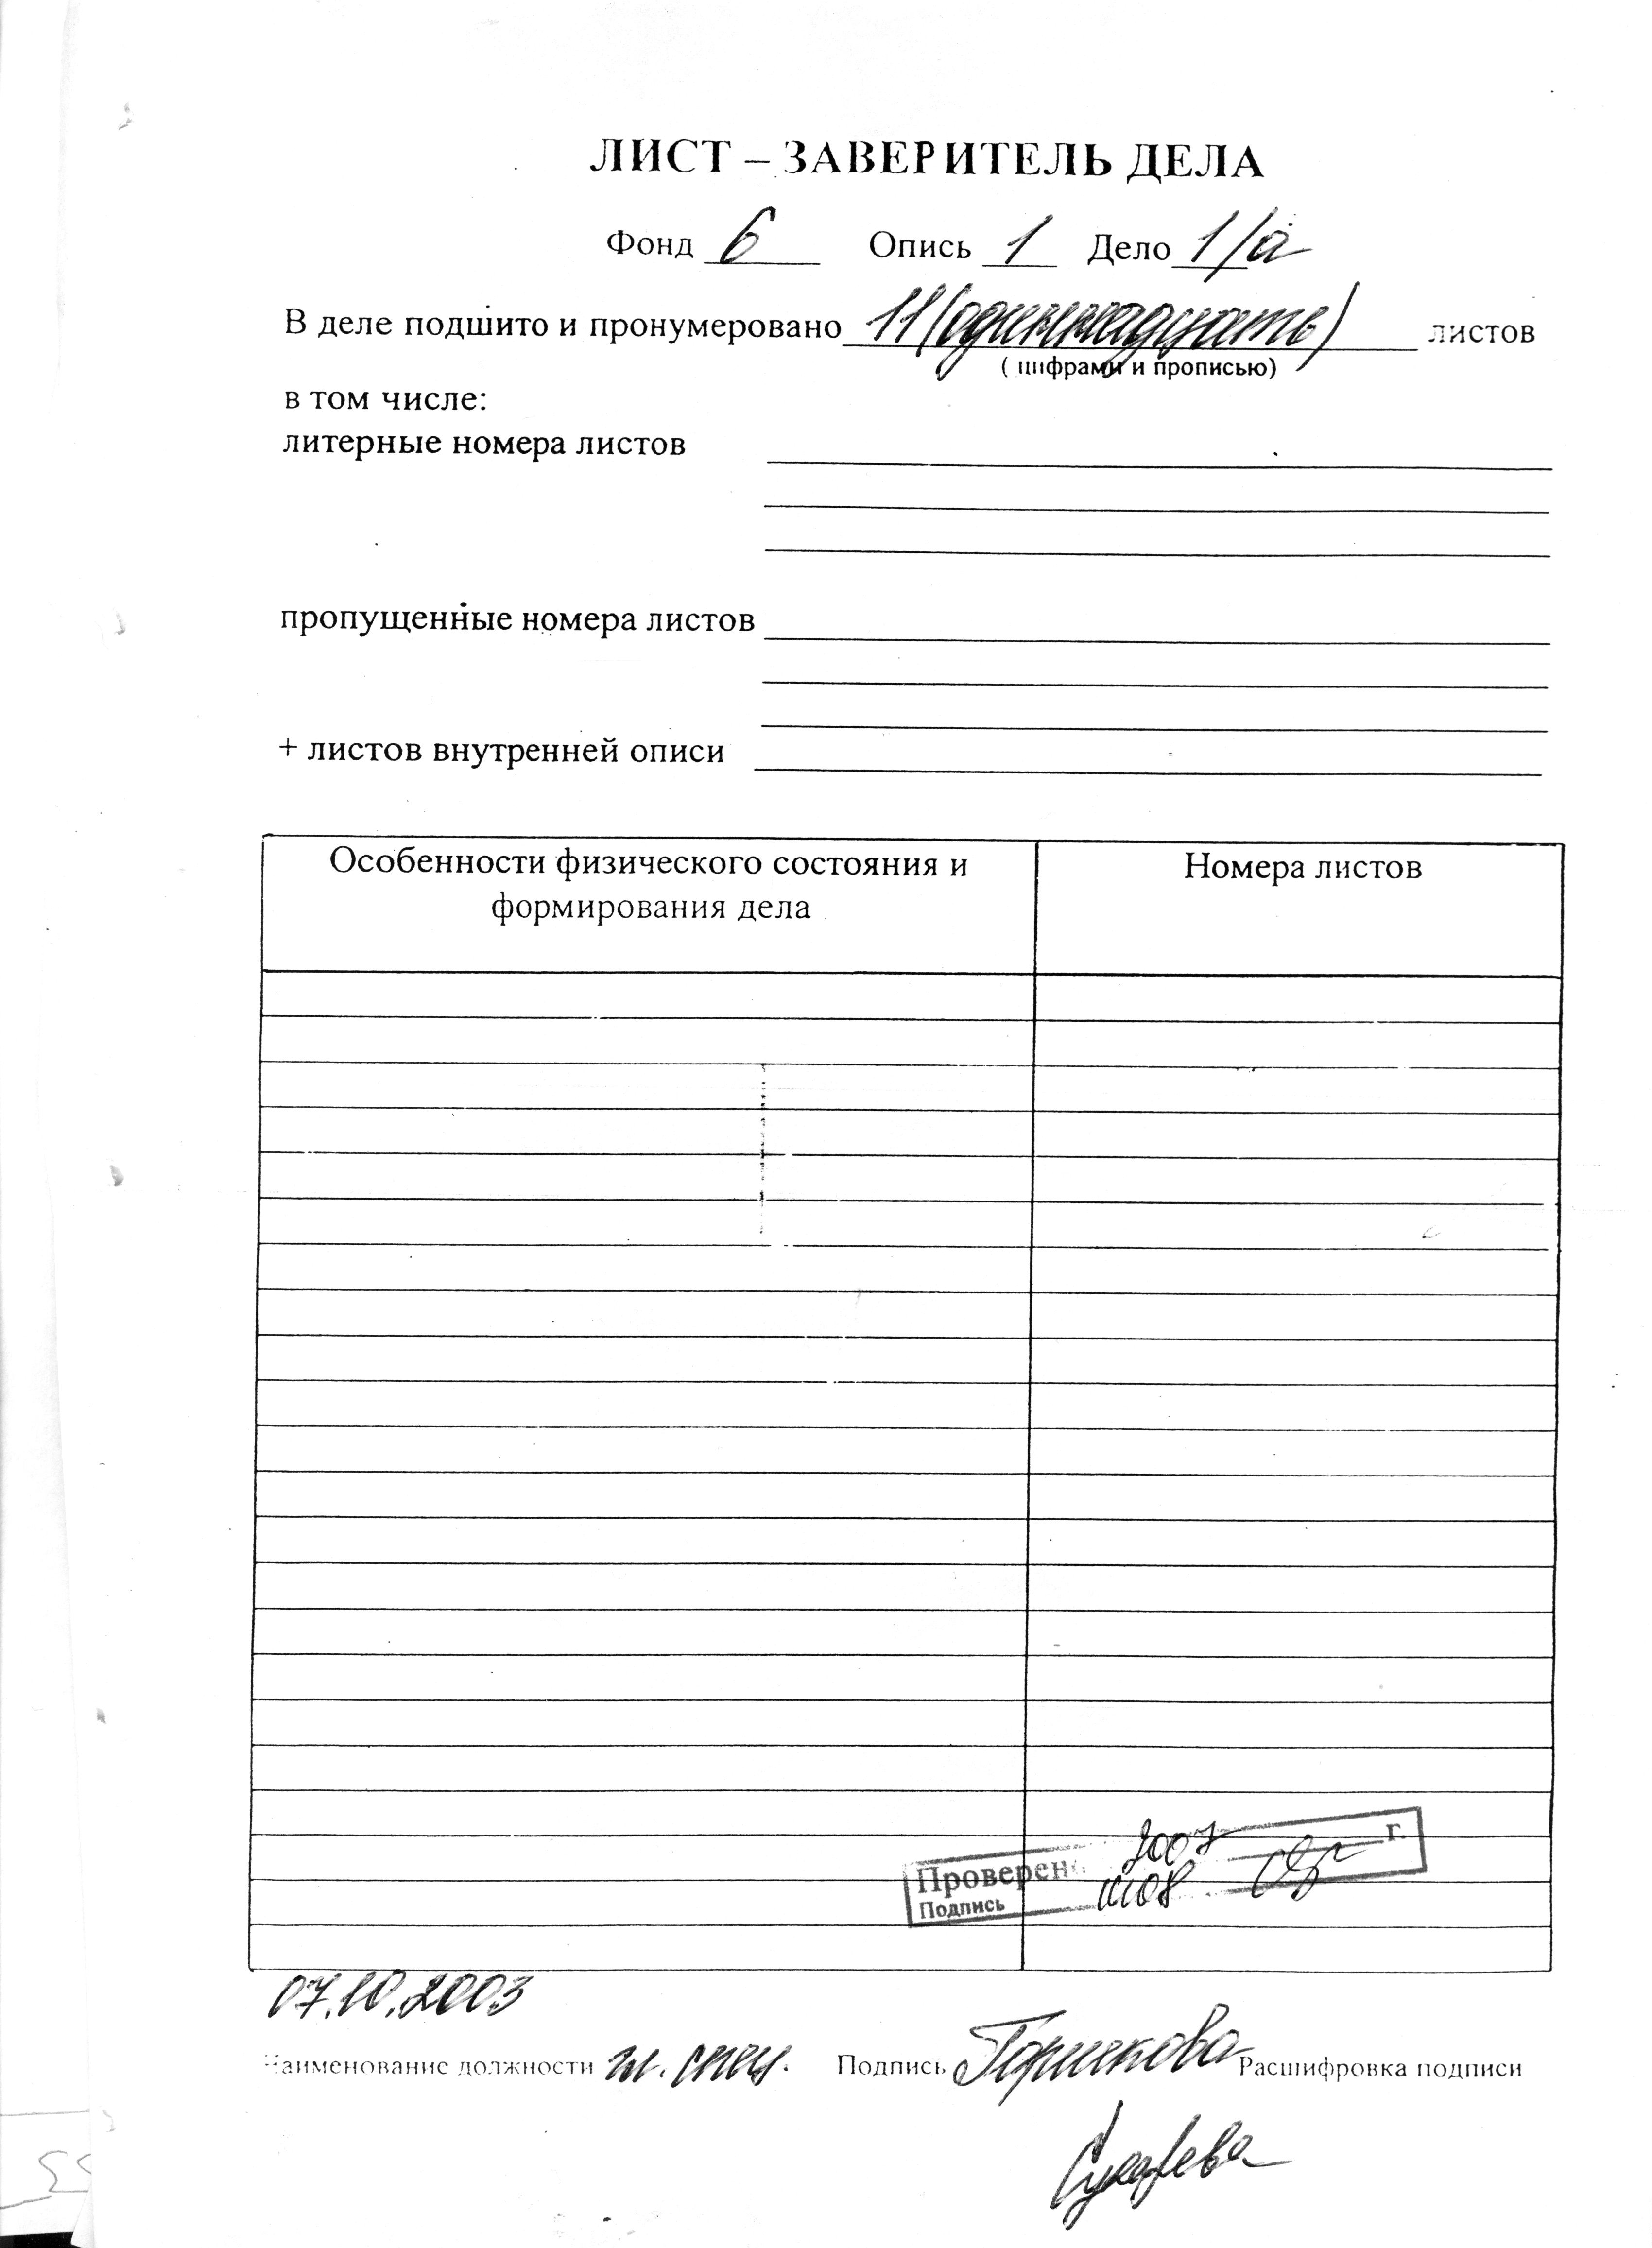 ЛИСТ – ЗАВЕРИТЕЛЬ ДЕЛА
Фонд 6 Опись 1 Дело 1/а
В деле подшито и пронумеровано 11 (одиннадцать) листов
( цифрами и прописью)
в том числе:
литерные номера листов
пропущенные номера листов
+ листов внутренней описи
Особенности физического состояния и Номера листов
формирования дела
2007 г.
Проверено
Подпись
07.10.2003
Наименование должности гл. спец. Подпись Горшкова Расшифровка подписи